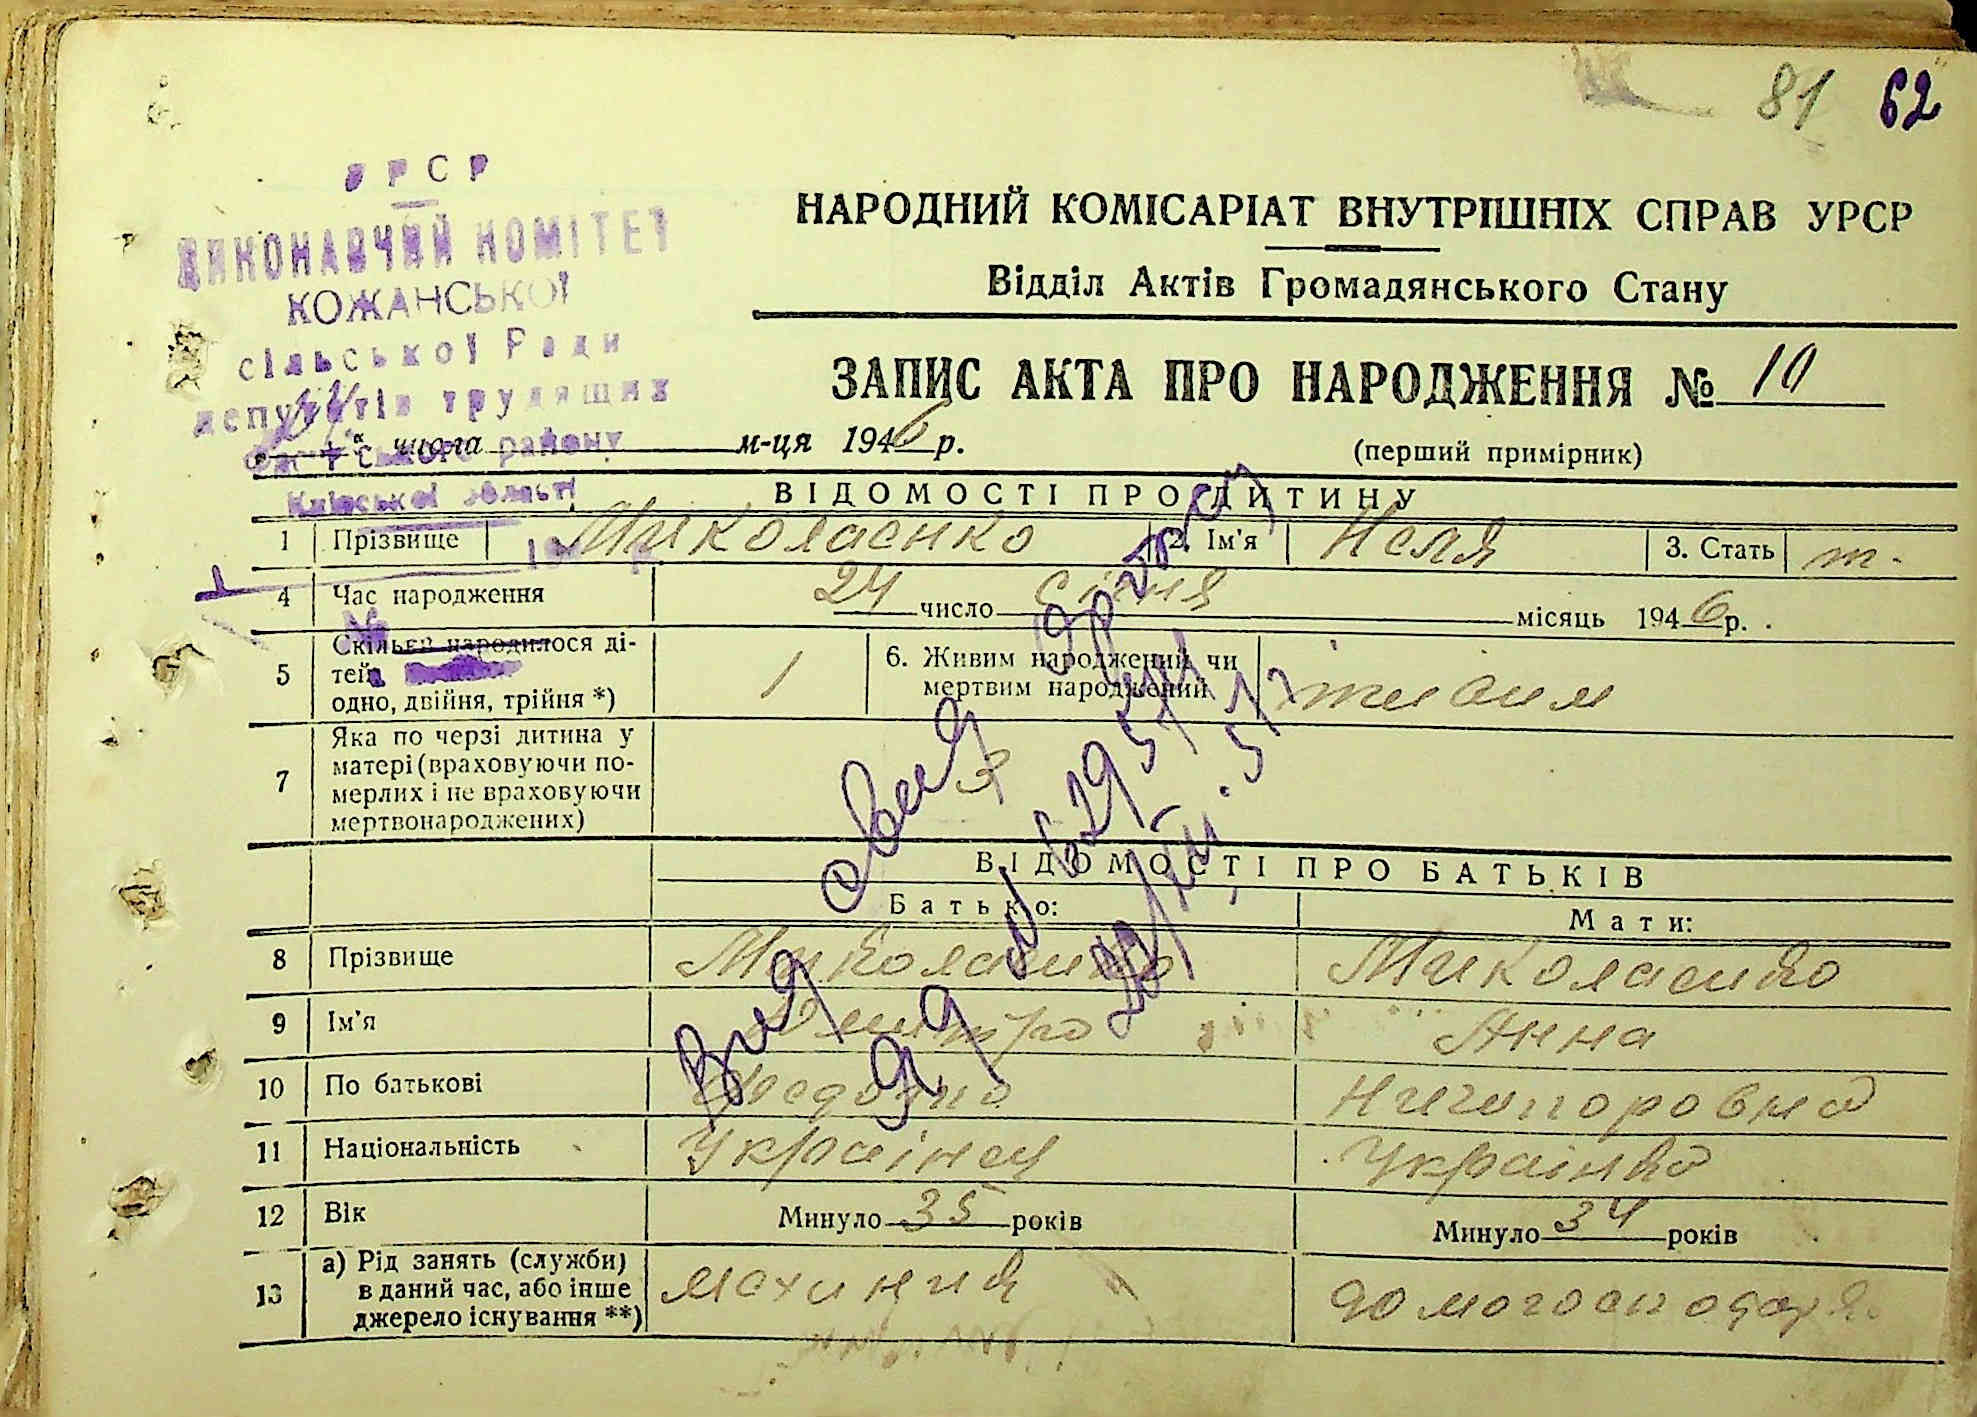 81 62
УРСР
ВИКОНАВЧИЙ КОМІТЕТ
КОЖАНСЬКОЇ
сільської Ради
депутатів трудящих
району
Київської області
НАРОДНИЙ КОМІСАРІАТ ВНУТРІШНІХ СПРАВ УРСР
Відділ Актів Громадянського Стану
ЗАПИС АКТА ПРО НАРОДЖЕННЯ № 10
числа м-ця 1946 р.
(перший примірник)
ВІДОМОСТІ ПРО ДИТИНУ
1 Прізвище Миколаенко 2. Ім'я Неля 3. Стать ж.
4 Час народження 24 число січня місяць 1946 р.
5 Скільки народилося дітей:
одно, двійня, трійня *) 1
6. Живим народжений чи
мертвим народжений живим
7 Яка по черзі дитина у
матері (враховуючи по-
мерлих і не враховуючи
мертвонароджених) 3
ВІДОМОСТІ ПРО БАТЬКІВ
Батько: Мати:
8 Прізвище Миколаенко Миколаенко
9 Ім'я Дмитро Анна
10 По батькові Ничипоровна
11 Національність Українец Українка
12 Вік Минуло 35 років Минуло 34 років
13 а) Рід занять (служби)
в даний час, або інше
джерело існування **)